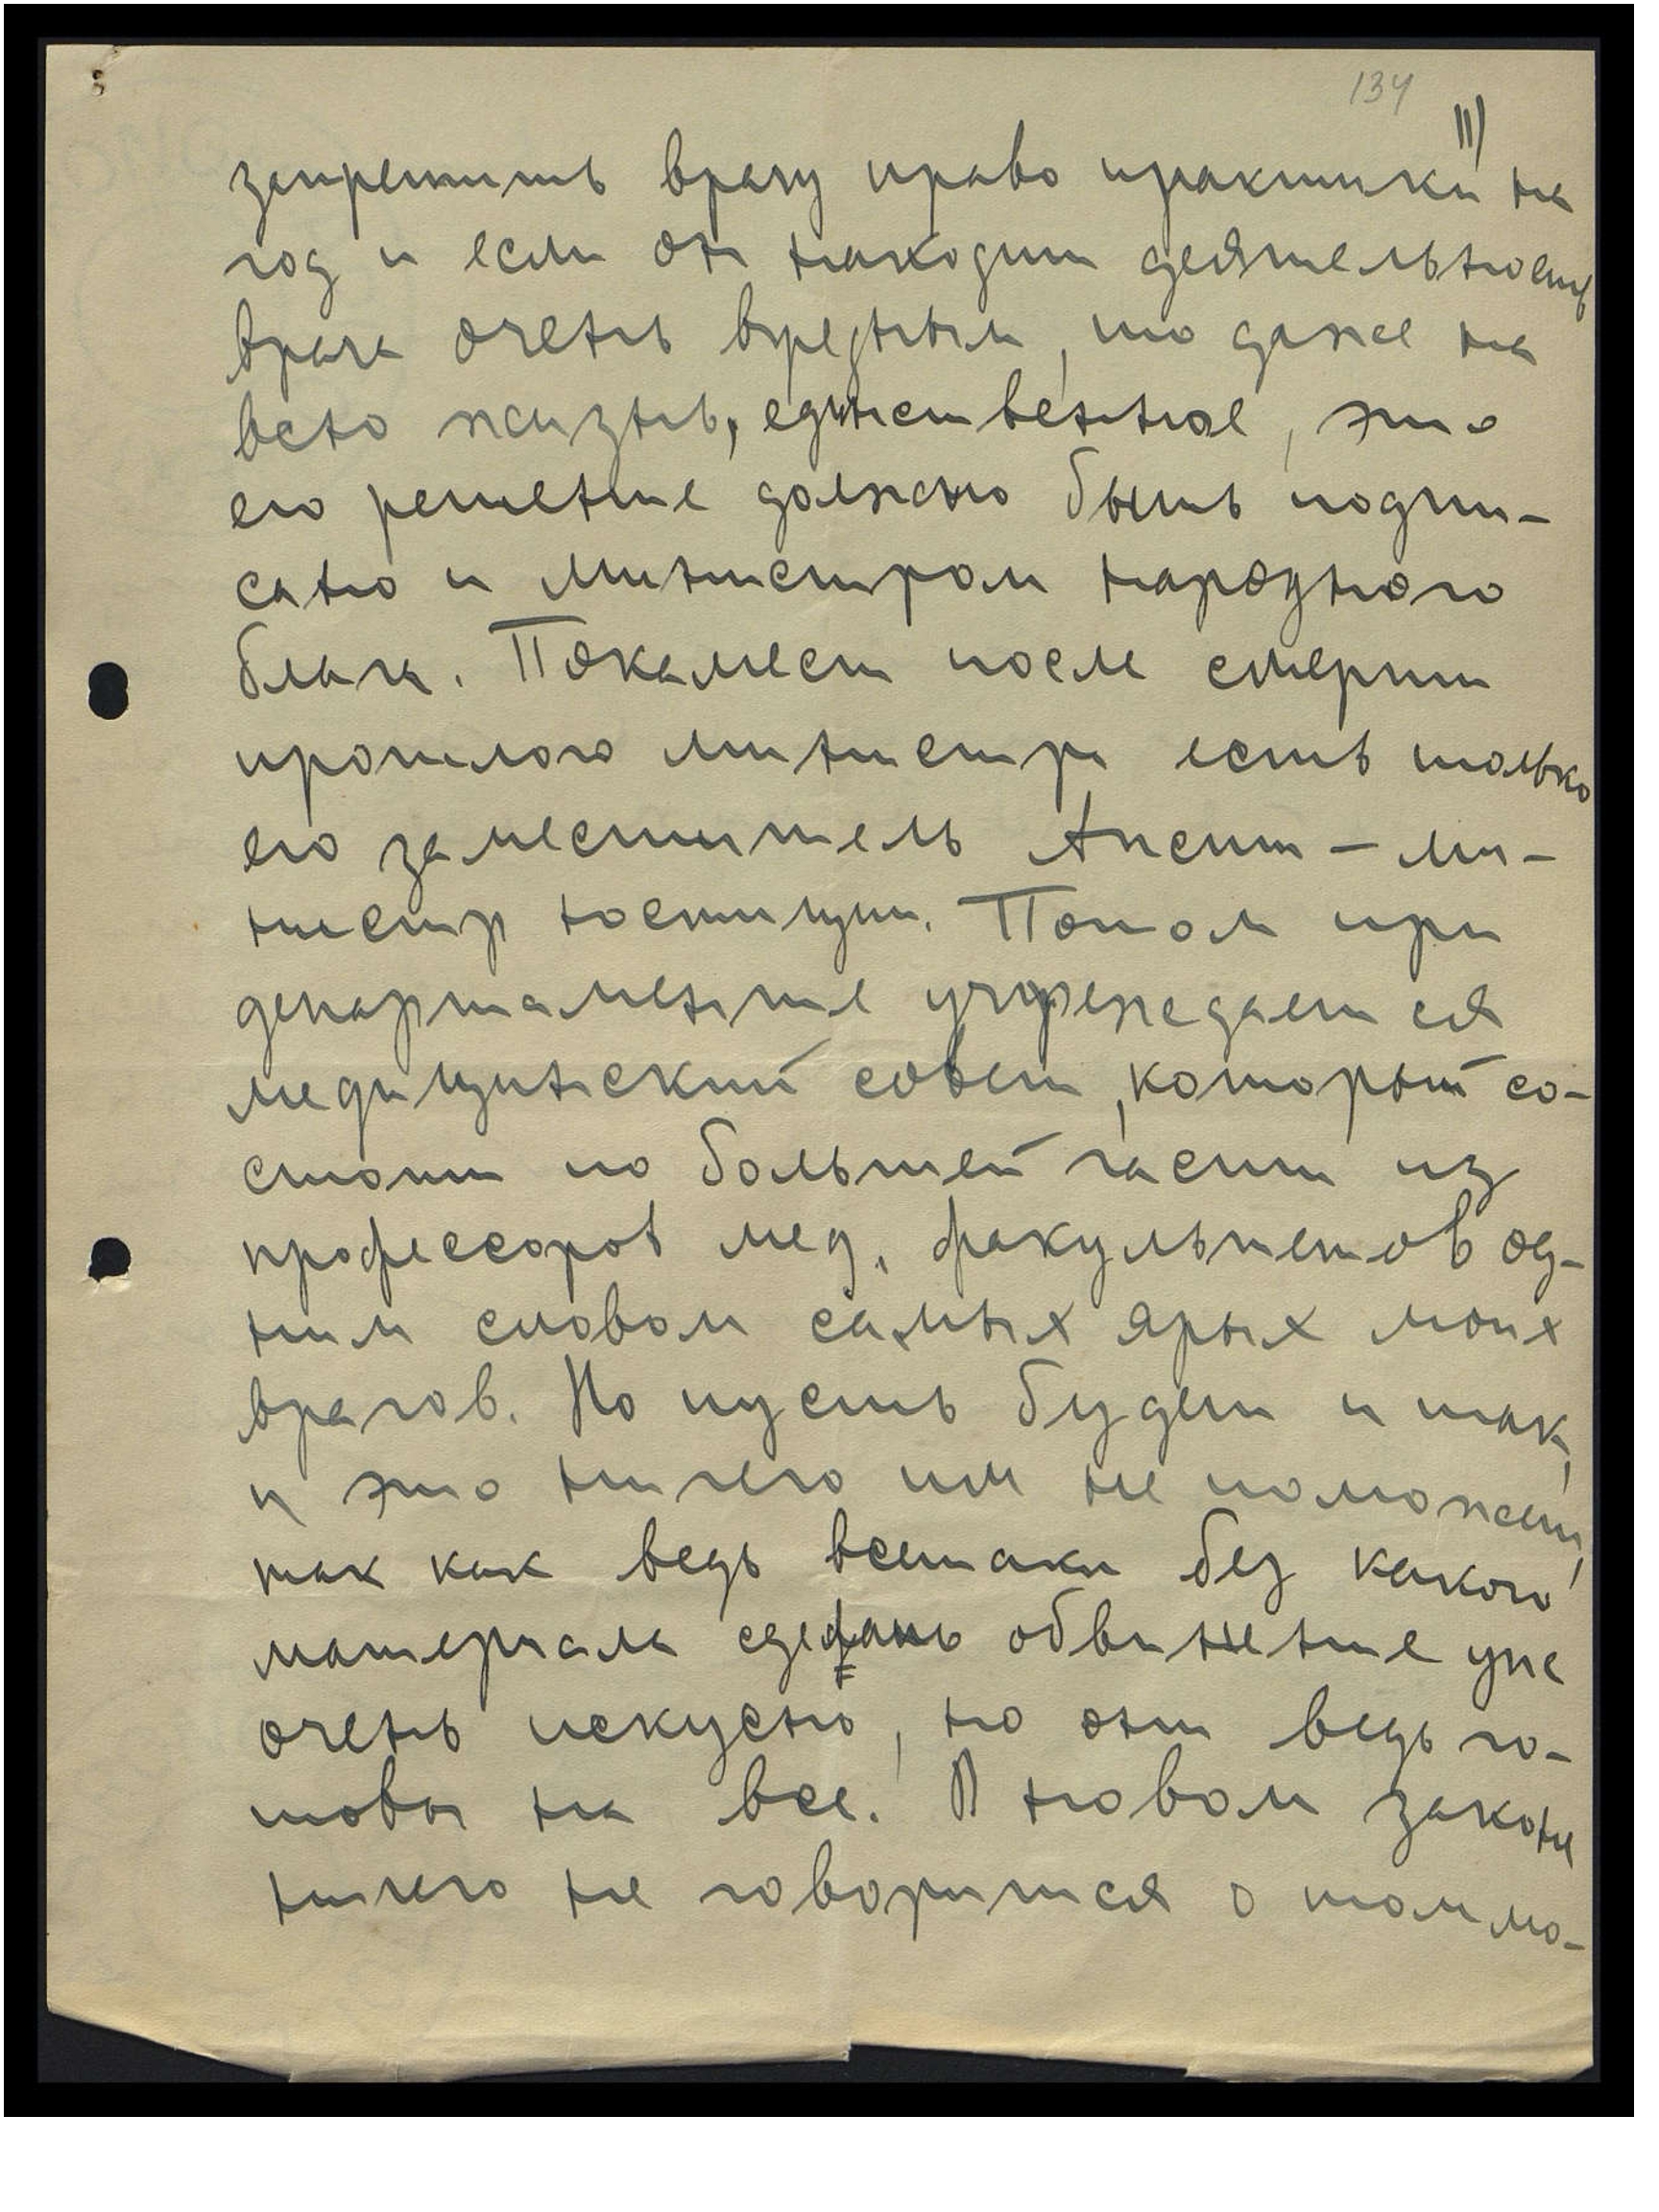 134
III)
запретить врачу право практики на
год и если он находит деятельность
врача очень вредным, то даже на
всю жизнь, единственное, это
его решение должно быть подпи-
сано и министром народного
блага. Покамест после смерти
прошлого министра есть только
его заместитель Апсит – ми-
нистр юстиции. Потом при
департаменте учреждается
медицинский совет, который со-
стоит по большей части из
профессоров мед. факультетов од-
ним словом самых ярых моих
врагов. Но пусть будет и так,
и это ничего им не поможет,
так как ведь всетаки без какого
материала сделано обвинение уже
очень искусно, но они ведь го-
товы на все. В новом законе
ничего не говорится о том мо-